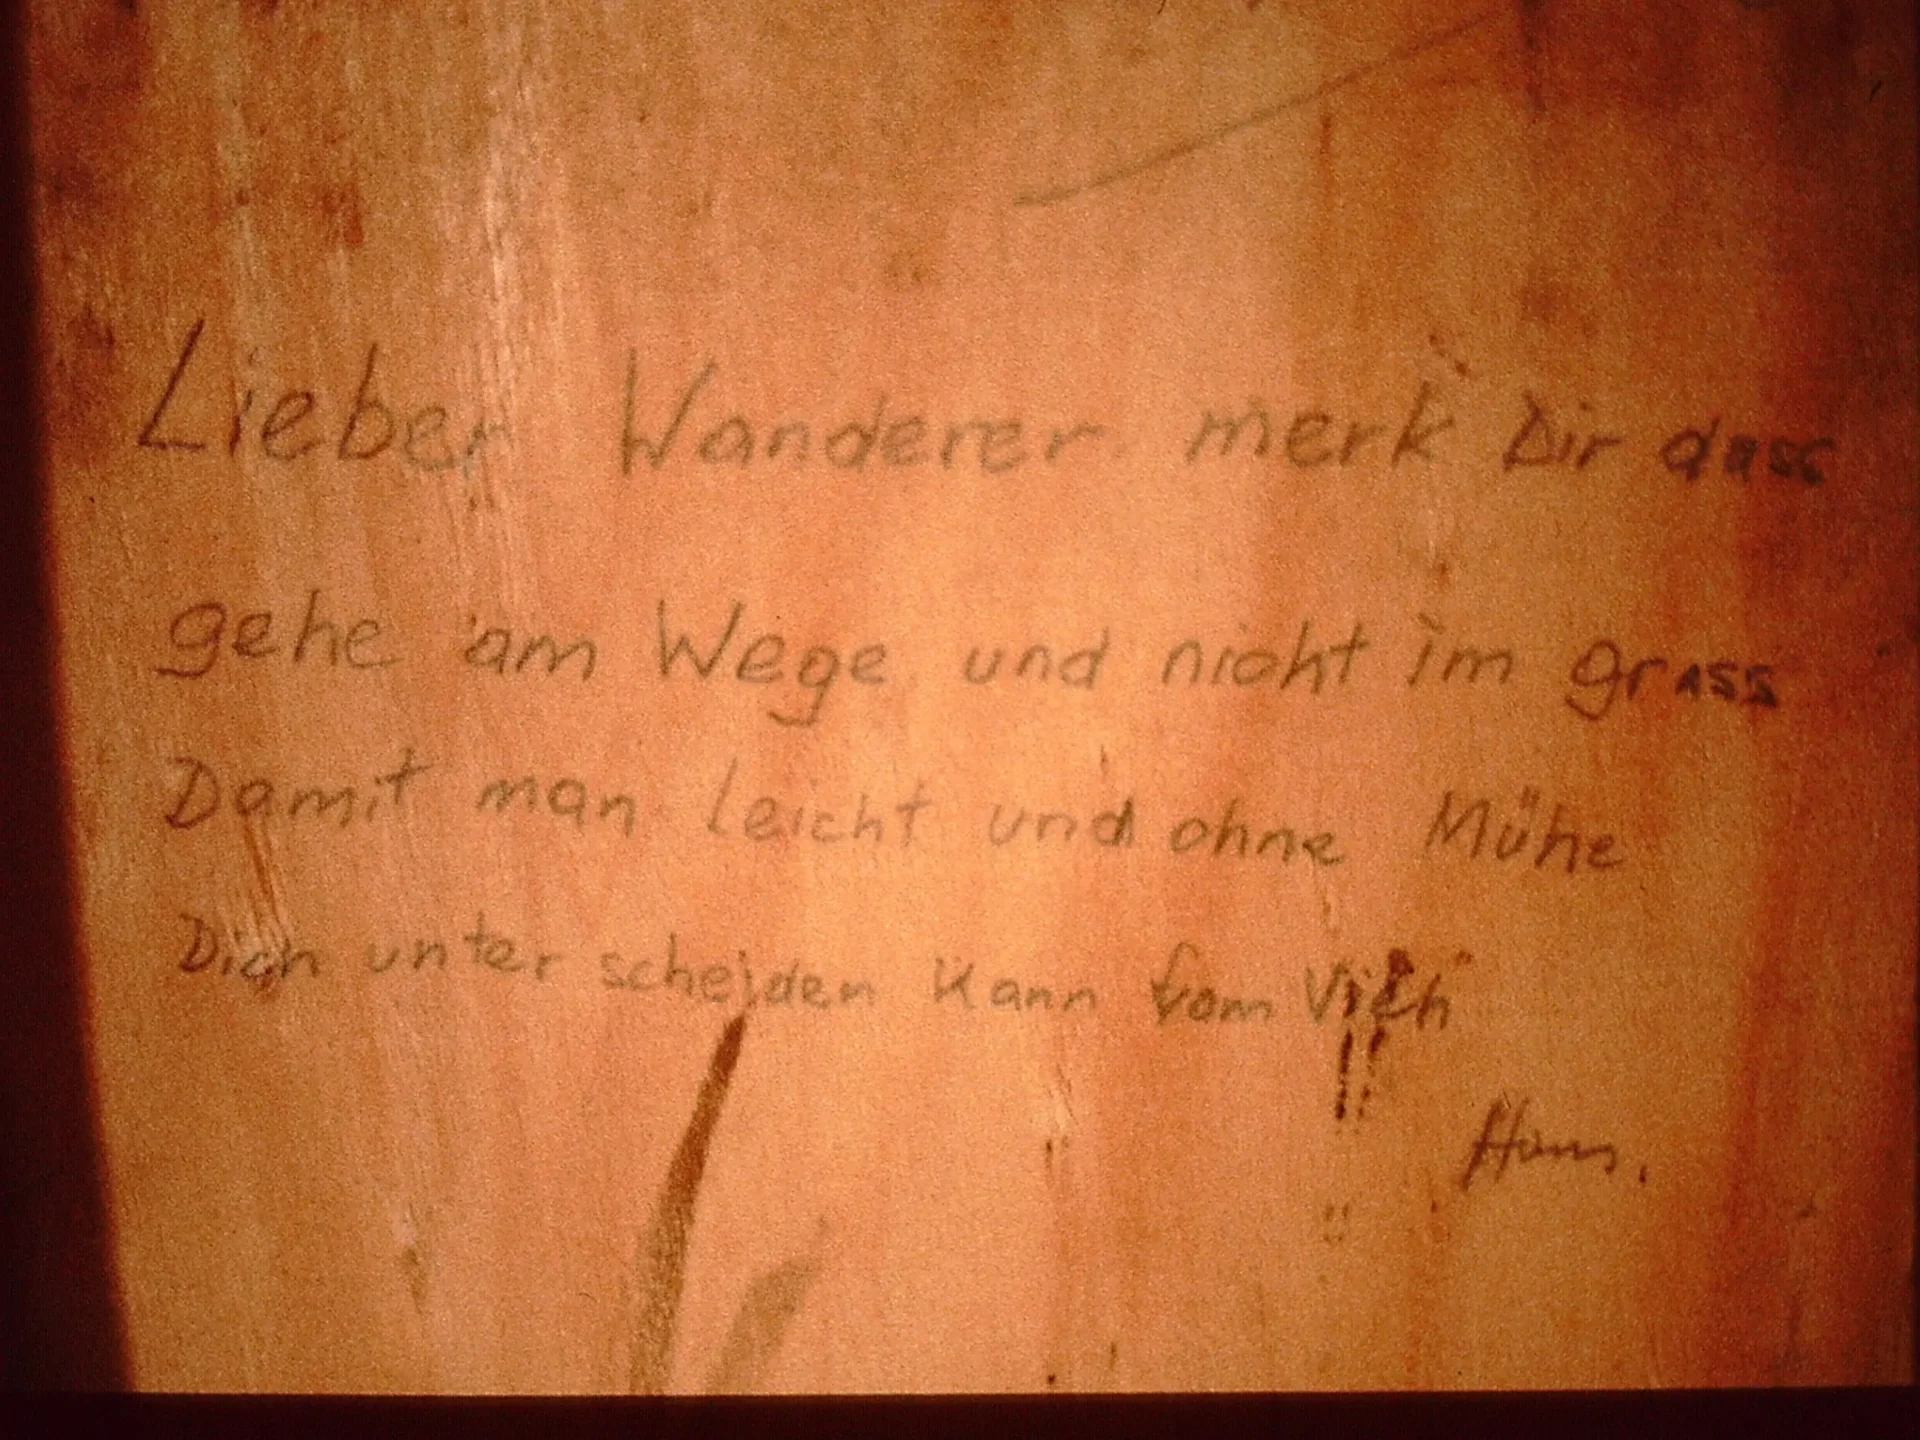 Lieber Wanderer merk Dir dass
gehe am Wege und nicht im grass
Damit man leicht und ohne Mühe
Dich unter scheiden kann fom Vieh
Hans.